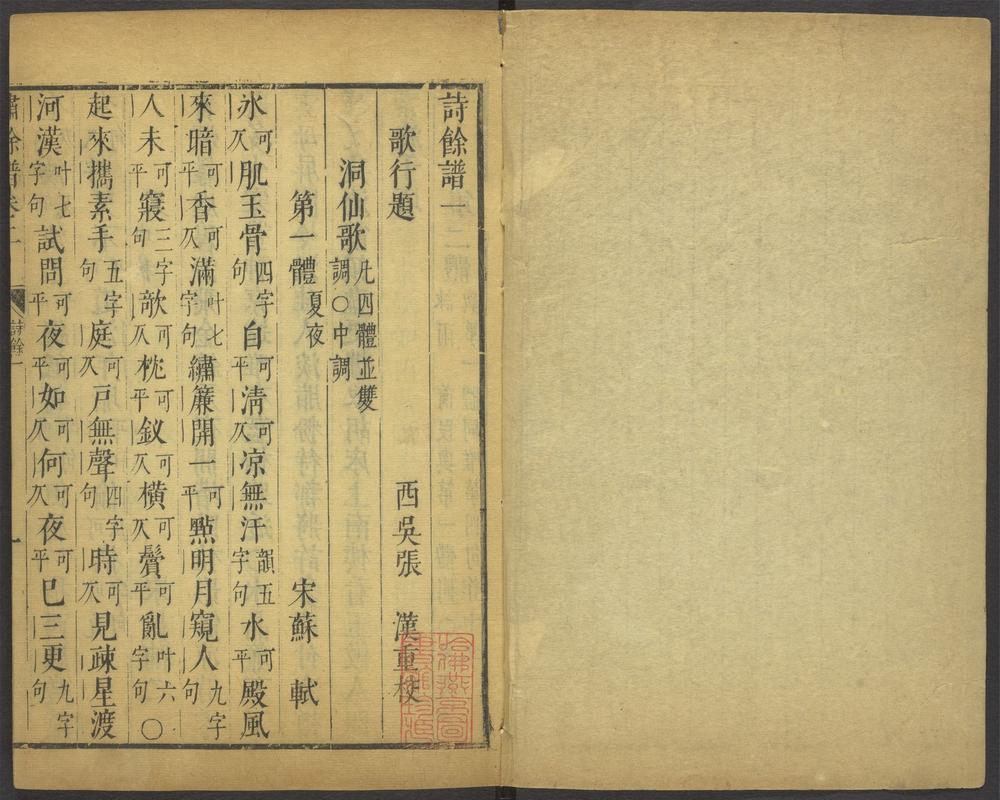 詩餘譜一
歌行題 西吳張 漢重校
洞仙歌凡四體並雙調○中調
第一體夏夜 宋蘇 軾
氷可仄肌玉骨四字句自可平清可仄凉無汗韻五字句水可平殿風
來暗可平香可仄滿叶七字句繡簾開一可平點明月窺人九字句
人未可平寢三字句欹可仄枕可平釵可仄橫可仄鬢可平亂叶六字句○
起來攜素手五字句庭可仄戶無聲四字句時可仄見疎星渡
河漢叶七字句試問可平夜可平如可仄何可仄夜可平巳三更九字句
嘯餘譜卷二 詩餘一 一
哈佛燕京圖書館珍藏